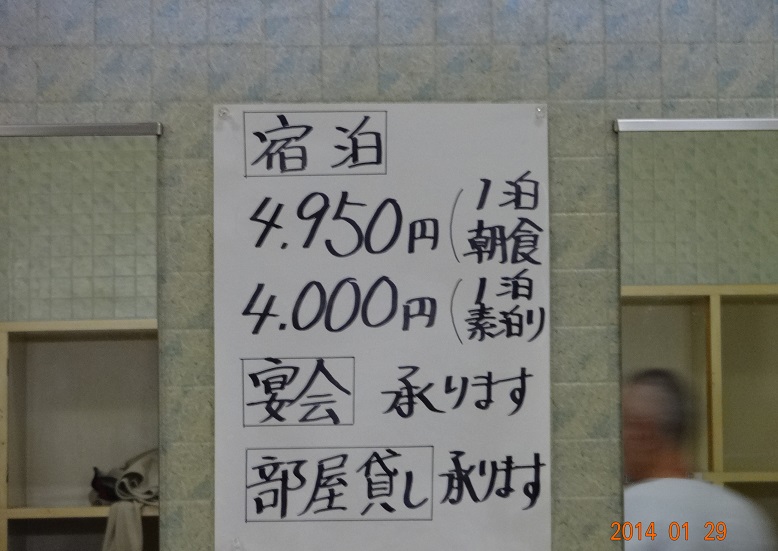 宿泊
4.950円(1泊
朝食
4.000円(1泊
素泊り
宴会 承ります
部屋貸し 承ります
2014 01 29